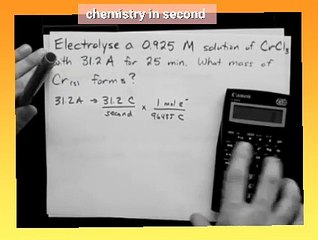 chemistry in second
Electrolyse a 0.925 M solution of CrCl3
with 31.2 A for 25 min. What mass of
Cr(s) forms?
31.2 A → 31.2 C / second × 1 mol e⁻ / 96485 C
Canon